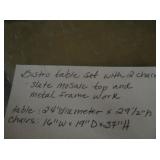 Bistro table set with 2 chairs
- slate mosaic top and
metal frame work
table: 24" diameter x 29½" h
chairs: 16"W x 19"D x 37"H